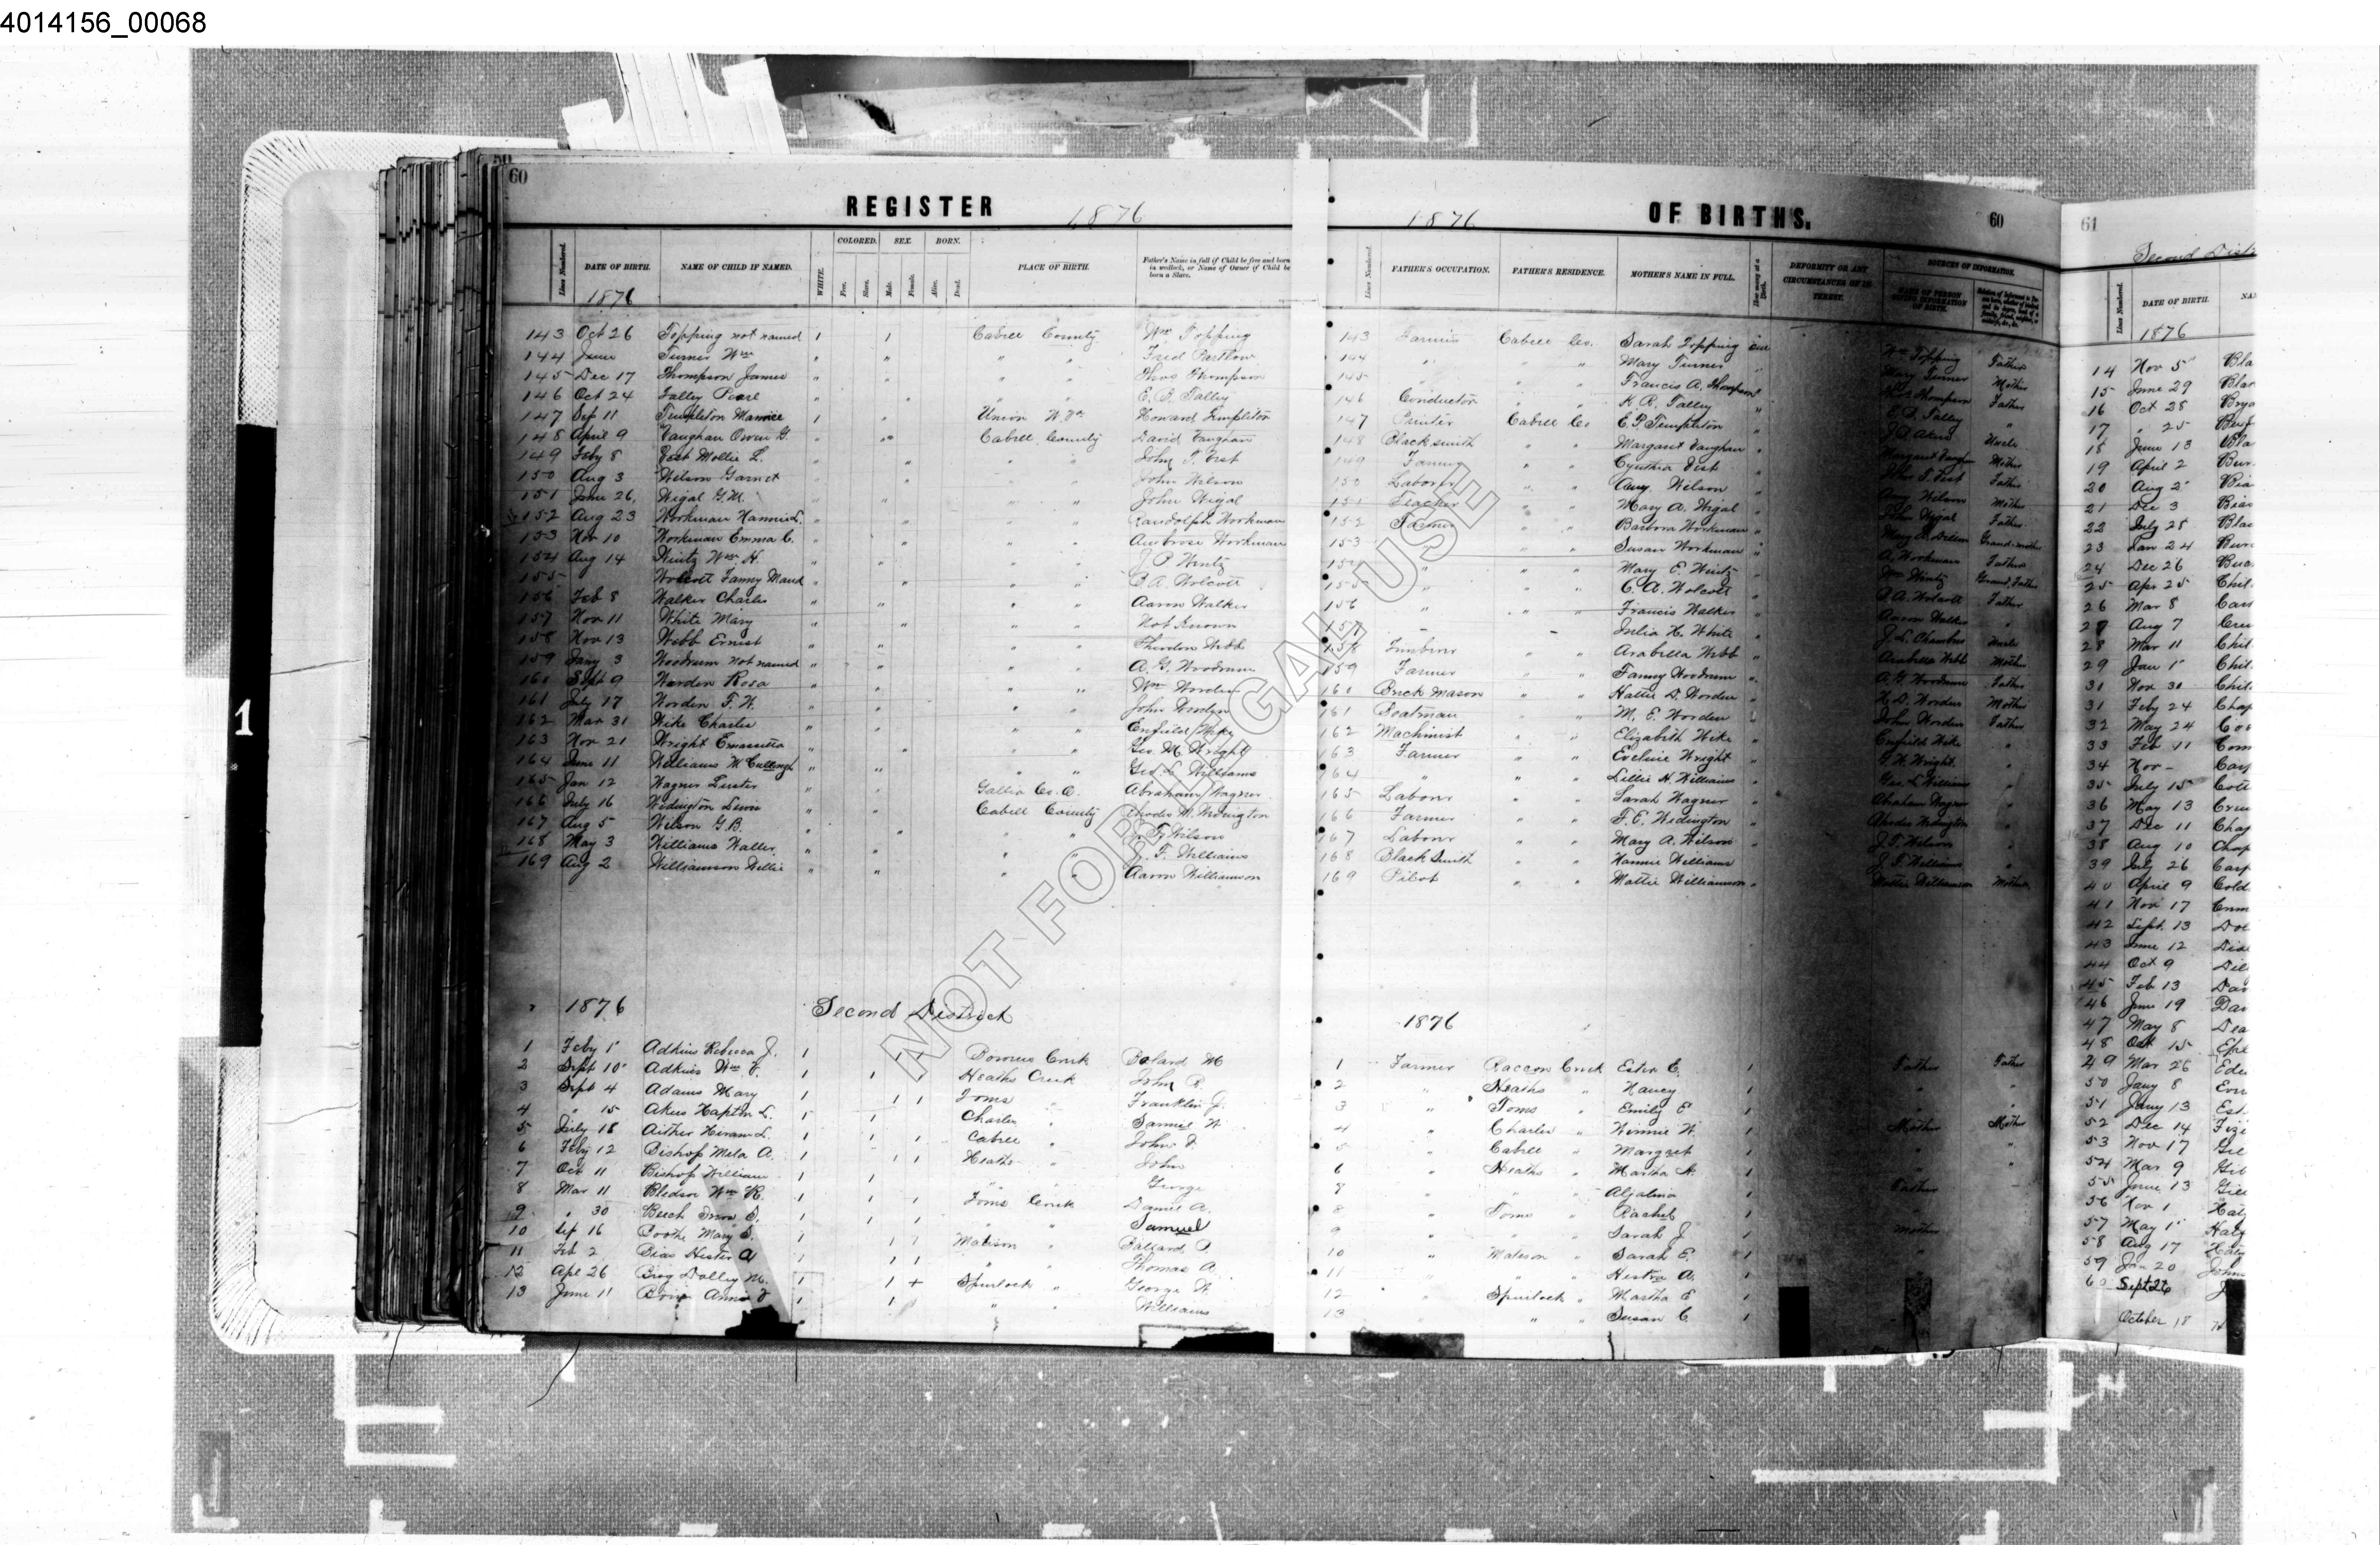 4014156_00068
60
REGISTER 1876
1876 OF BIRTHS. 60
Lines Numbered. DATE OF BIRTH. NAME OF CHILD IF NAMED. WHITE. COLORED. Free. Slave. SEX. Male. Female. BORN. Alive. Dead. PLACE OF BIRTH. Father's Name in full if Child be free and born in wedlock, or Name of Owner if Child be born a Slave.
1876
Lines Numbered. FATHER'S OCCUPATION. FATHER'S RESIDENCE. MOTHER'S NAME IN FULL. How many at a Birth. DEFORMITY OR ANY CIRCUMSTANCES OF INTEREST. SOURCES OF INFORMATION. NAME OF PERSON GIVING INFORMATION OF BIRTH.
143 Oct 26 Topping not named 1 1 Cabell County Wm Topping 143 Cabell Co. Sarah Topping Wm Topping Father
144 June Turner Wm " " " " Fred Partlow 144 " " " Mary Turner " Mary Turner Mother
145 Dec 17 Thompson James " " " " Thos Thompson 145 " " " Francis A. Thompson " Thos Thompson Father
146 Oct 24 Talley Pearl " " " " E. R. Talley 146 Conductor " " K. R. Talley " E. R. Talley "
147 Sep 11 Templeton 1 " Union W. Va Howard Templeton 147 Printer Cabell Co E. P. Templeton " Uncle
148 April 9 Vaughan Owen G. " " Cabell County David Vaughan 148 Blacksmith " " Margaret Vaughan " Margaret Vaughan Mother
149 Feby 8 Vest Mollie L. " " " " John T. Vest 149 Farmer " " Cynthia Vest " John T. Vest Father
150 Aug 3 Wilson Garnet " " " " John Wilson 150 Laborer " " Amy Wilson " Amy Wilson Mother
151 June 26, Wigal G. M. " " " " John Wigal 151 Teacher " " Mary A. Wigal " John Wigal Father
152 Aug 23 Workman Nannie L. " " " " Randolph Workman 152 Farmer " " Barbora Workman " Grand-mother
153 Nov 10 Workman Emma C. " " " " Ambrose Workman 153 " " Susan Workman " A. Workman Father
154 Aug 14 Wintz Wm H. " " " J. P. Wintz 154 " " " Mary E. Wintz " Wm Wintz Grand Father
155 Wolcott Fanny Maud " " " " C. A. Wolcott 155 " " " C. A. Wolcott " C. A. Wolcott Father
156 Feb 8 Walker Charles " " " " Aaron Walker 156 " " " Francis Walker " Aaron Walker "
157 Nov 11 White Mary " " " " Not Known 157 – – Julia H. White " J. L. Chambers Uncle
158 Nov 13 Webb Ernest " " " " Webb 158 " " Arabella Webb " Arabella Webb Mother
159 Jany 3 Woodrum not named " " " " A. G. Woodrum 159 Farmer " " Fanny Woodrum " A. G. Woodrum Father
160 Sept 9 Worden Rosa " " " " Wm Worden 160 Brick Mason " " Hattie D. Worden " H. D. Worden Mother
161 July 17 Worden F. W. " " " " John Worden 161 Boatman " M. E. Worden " John Worden Father
162 Mar 31 Wike Charles " " " " Enfield Wike 162 Machinist " " Elizabeth Wike " Enfield Wike "
163 Nov 21 Wright " " " " Geo. M. Wright 163 Farmer " " Eveline Wright " Wright "
164 June 11 Williams " " " " Geo. L. Williams 164 " " " Lillie H. Williams " Geo L. Williams "
165 Jan 12 Wagner Lester " " Gallia Co. O. Abraham Wagner 165 Laborer " " Sarah Wagner " Abraham Wagner "
166 July 16 Widington Lewis " " Cabell County Widington 166 Farmer " " F. E. Widington " "
167 Aug 5 Wilson G. B. " " " " J. T. Wilson 167 Laborer " " Mary A. Wilson " J. T. Wilson "
168 May 3 Williams Walter " " " " J. F. Williams 168 Black Smith " " Nannie Williams " J. F. Williams "
169 Aug 2 Williamson Willie " " " " Aaron Williamson 169 Pilot " " Mattie Williamson " Mattie Williamson Mother
1876 Second District 1876
1 Feby 1 Adkins Rebecca J. 1 1 1 Creek 1 Farmer Raccoon Creek Ester E. 1 Father Father
2 Sept 10 Adkins Wm J. 1 1 1 Heaths Creek John R. 2 " Heaths " Nancy 1 " "
3 Sept 4 Adams Mary 1 1 1 Toms " Franklin J. 3 " Toms " Emily E 1 " "
4 " 15 Akers L. 1 1 Charles " Samuel W. 4 " Charles " Winnie W. 1 Mother Mother
5 July 18 Hiram L. 1 1 1 Cabell " John F. 5 " Cabell " Margaret 1 " "
6 Feby 12 Bishop Mela A. 1 1 1 Heaths " John 6 " Heaths " Martha A. 1 "
7 Oct 11 Bishop William 1 1 " " George " " " 1 Father
8 Mar 11 Bledsoe Wm R. 1 1 1 Toms Creek Daniel A. 8 " Toms " Rachel 1 "
9 " 30 Beech 1 1 1 " " Samuel 9 " " " Sarah J 1 Mother
10 Sep 16 Booth Mary S. 1 1 1 Matison " Ballard P. 10 " Matison " Sarah E. 1 "
11 Feb 2 Bias Hester A 1 1 1 " " Thomas A. 11 " " " Hester A. 1
12 Apl 26 Dolley M. 1 1 + Spurlock " George W. 12 " Spurlock " Martha E 1
13 June 11 Annie J 1 1 " " Williams 13 " " " Susan C. 1
61
Second Dist
Lines Numbered. DATE OF BIRTH. NA
1876
14 Nov 5 Bla
15 June 29 Blar
16 Oct 28 Brya
17 " 25
18 June 13 Bla
19 April 2 Bur
20 Aug 2 Bia
21 Dec 3 Bias
22 July 28 Blac
23 Jan 24 Bur
24 Dec 26 Buc
25 Apr 25 Chil
26 Mar 8 Car
27 Aug 7
28 Mar 11 Chil
29 Jan 1 Chil
31 Nov 30 Chil
31 Feb 24 Chap
32 May 24 Coo
33 Feb 11 Com
34 Nov – Cap
35 July 15 Coll
36 May 13
37 Dec 11 Chap
38 Aug 10 Chap
39 July 26 Carp
40 April 9 Cold
41 Nov 17
42 Sept. 13
43 June 12
44 Oct 9 Dil
45 Feb 13 Dar
46 June 19 Dav
47 May 8 Dea
48 Oct 15
49 Mar 26 Ede
50 Jany 8
51 Jany 13 Est
52 Dec 14
53 Nov 17
54 Mar 9 Gib
55 June 13 Gil
56 Nov 1 Hat
57 May 1
58 Aug 17
59 Jan 20 John
60 Sept 26 J
October 18
1
NOT FOR LEGAL USE